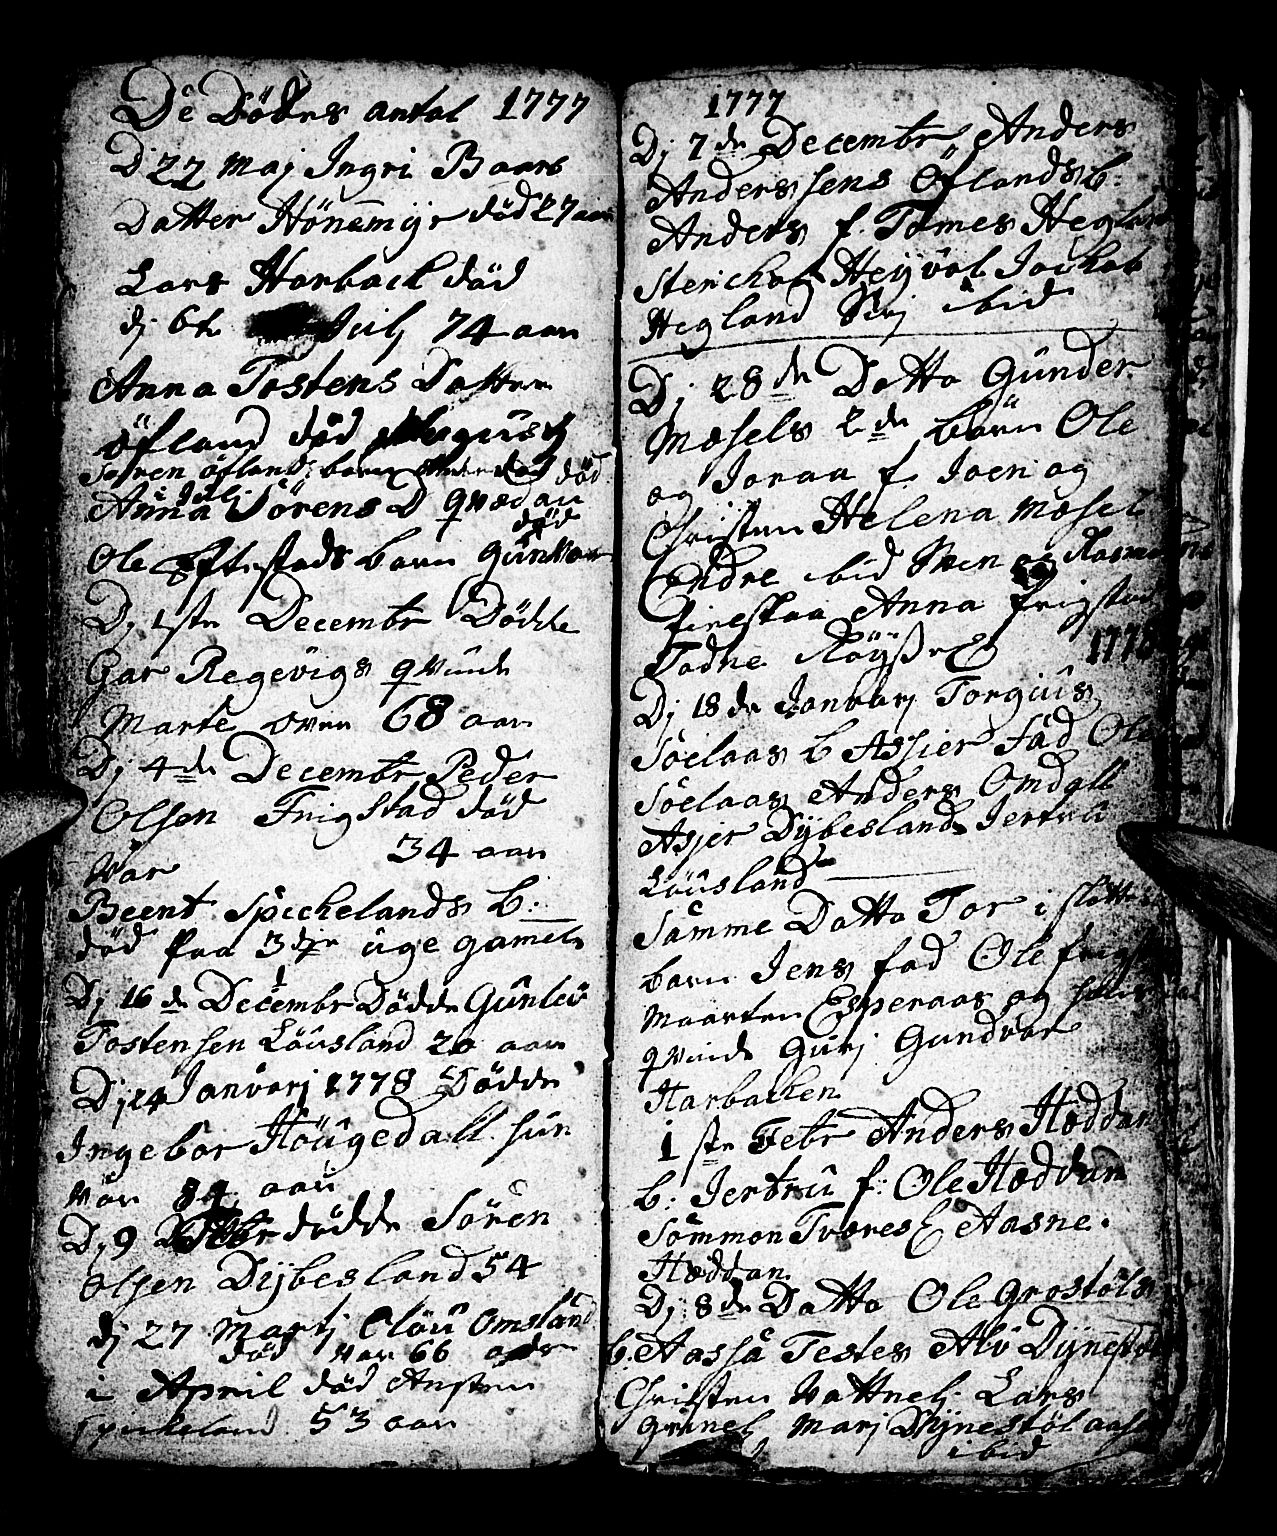 De Dödes antal 1777
Dj 22 Maj Ingri Baars
Datter Hönemyr död 27 aar
Lars Harback död
dj 6te Julj 74 aar
Anna Tostens Datter
Öfland död Augustj
Sören Öflands barn död
Anna Sörens D Qvedau död
Ole Eftestads barn Gunvor död
Dj 1ste Decembr Dödde
Gar Regevigs qvinde
Marte over 68 aar
Dj 4de Decembr Peder
Olsen Frigstad död
var 34 aar
Beent Spickelands b:
död paa 3die uge gamel
Dj 16de Decembr Dödde Gunlev
Tostensen Löusland 20 aar
Dj 24 Januarj 1778 Dödde
Ingebor Höugedall hun
var 84 aar
Dj 9 Febr dödde Sören
Olsen Dijbesland 54
dj 27 Martj Olöu Omsland
död var 66 aar
i April död Ansten
Spickeland 53 aar
1777
Dj 7de Decembr Anders
Anderssens Öflands b.
Anders f. Tomes Hegland
Sterchar Heyvol Jachob
Hegland Siri ibid
Dj 28de Datto Gunder
Mosels 2de börn Ole
og Joraa f. Joen og
Christen Helena Mosel
Endre ibid Sven og Rasmus
fireskaa Anna Frigstad
Tadne Röyss
1778
Dj 18de Januarj Torgius
Söelaas b Assier Fad Ole
Söelaas Anders Omdall
Asjer Dijbesland Jertru
Löusland
Samme Datto Tor i slötte
barn Jens fad Ole frigstad
Maarten Esperaas og hans
qvinde Gurj Gundvor
Harbacken
1ste Febr Anders Hæddan
b: Jertru f: Ole Hæddan
Sömmon Tveres Aasne
Hæddan
Dj 8de Datto Ole Grostöls
b. Aassa Testes Alv Dijnestöl
Christen Vattnelj Lars
Grunelj Marj Dijnestöl Aase
ibid